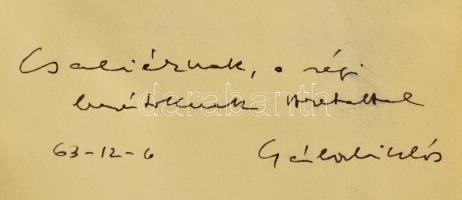 Csaliérnak, a régi
barátoknak szeretettel
63-12-6 Gádor Miklós
darabanth.com